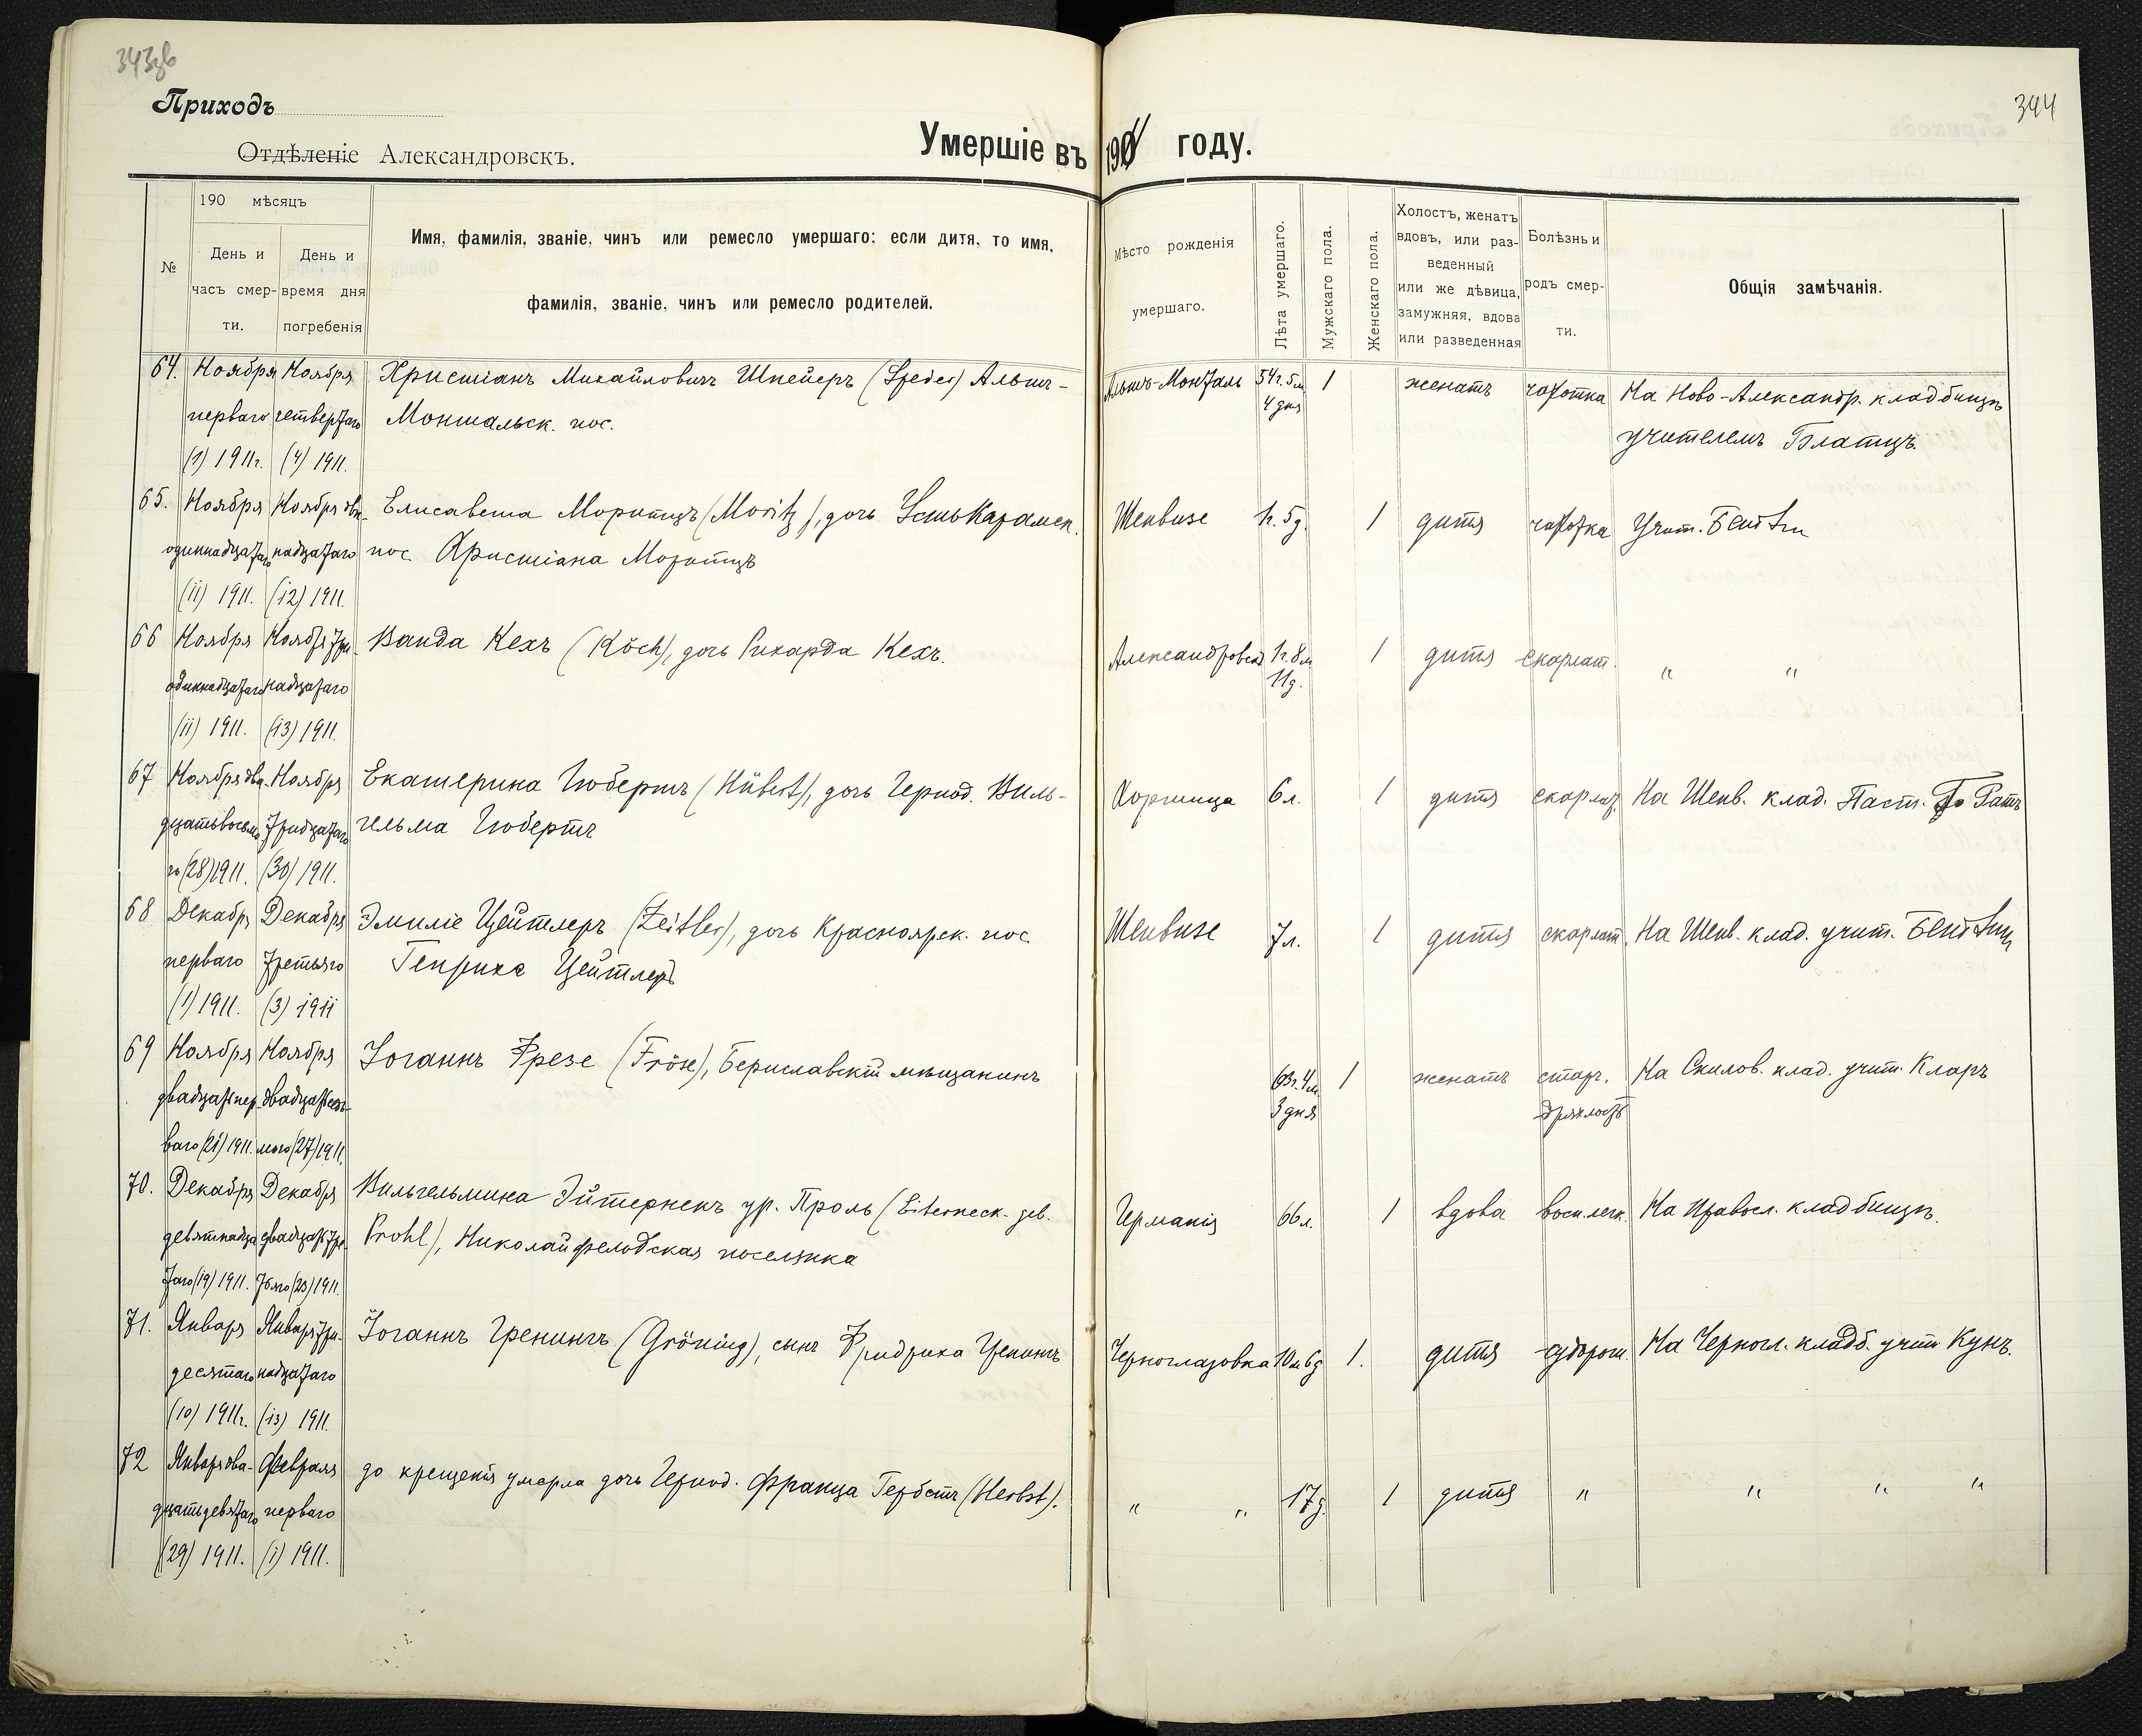 343об
344
Приходъ
Отдѣленіе Александровскъ.
Умершіе въ 1911 году.
№
190 мѣсяцъ
День и часъ смер-ти.
День и время дня погребенія
Имя, фамилія, званіе, чинъ или ремесло умершаго; если дитя, то имя,
фамилія, званіе, чинъ или ремесло родителей.
Мѣсто рожденія умершаго.
Лѣта умершаго.
Мужскаго пола.
Женскаго пола.
Холостъ, женатъ вдовъ, или раз-веденный или же дѣвица, замужняя, вдова или разведенная
Болѣзнь и родъ смер-ти.
Общія замѣчанія.
64. Ноября Ноября Христіанъ Михайловичъ Шпейеръ Альтъ- Альтъ-Монталь 54г. 5м. 1 женатъ чахотка На Ново-Александр. кладбищѣ
перваго четвертаго Монтальск. пос. 4 дня учителемъ Блатцъ.
(1) 1911г. (4) 1911.
65. Ноября Ноября два- Елисавета Моритцъ (Moritz), дочь Шенвизе 1г. 5д. 1 дитя чахотка Учит.
одиннадцатаго надцатаго пос. Христіана Моритцъ
(11) 1911. (12) 1911.
66 Ноября Ноября три- Ванда Кехъ (Köch), дочь Рихарда Кехъ. Александровскъ 1г. 8м. 1 дитя скарлат. " "
одиннадцатаго надцатаго 11д.
(11) 1911. (13) 1911.
67 Ноября два- Ноября Екатерина Гюбертъ (Hübert), дочь Гернод. Виль- Хортица 6л. 1 дитя скарлат. На Шенв. клад. Паст.
дцатьвосьма- тридцатаго гельма Гюбертъ
го (28) 1911. (30) 1911.
68 Декабря Декабря Эмиліе Цейтлеръ (Zeitler), дочь Красноярск. пос. Шенвизе 7л. 1 дитя скарлат. На Шенв. клад. учит.
перваго третьяго Генриха Цейтлеръ
(1) 1911. (3) 1911
69 Ноября Ноября Іоганнъ Фрезе (Fröse), Бериславскій мѣщанинъ 63г. 4м. 1 женатъ старч. На Скилов. клад. учит. Кларъ
двадцатьпер- двадцатьседь- 3 дня дряхлость
ваго (21) 1911. маго (27) 1911.
70. Декабря Декабря Вильгельмина ур. Проль (Eiterneck. geb. Германія 66л. 1 вдова восп. легк. На Правосл. кладбищѣ.
девятнадца- двадцатьтре- Prohl), Николайфельдская поселянка
таго (19) 1911. тьяго (23) 1911.
71. Января Января три- Іоганнъ Гренингъ (Gröning), сынъ Фридриха Гренингъ Черноглазовка 10м. 6д. 1. дитя судорог. На Черногл. кладб. учит. Кунъ.
десятаго надцатаго
(10) 1911г. (13) 1911.
72 Января два- Февраля до крещенія умерла дочь Гернод. Франца Гербстъ (Herbst). " " 17д. 1 дитя " " " "
дцатьдевятаго перваго
(29) 1911. (1) 1911.